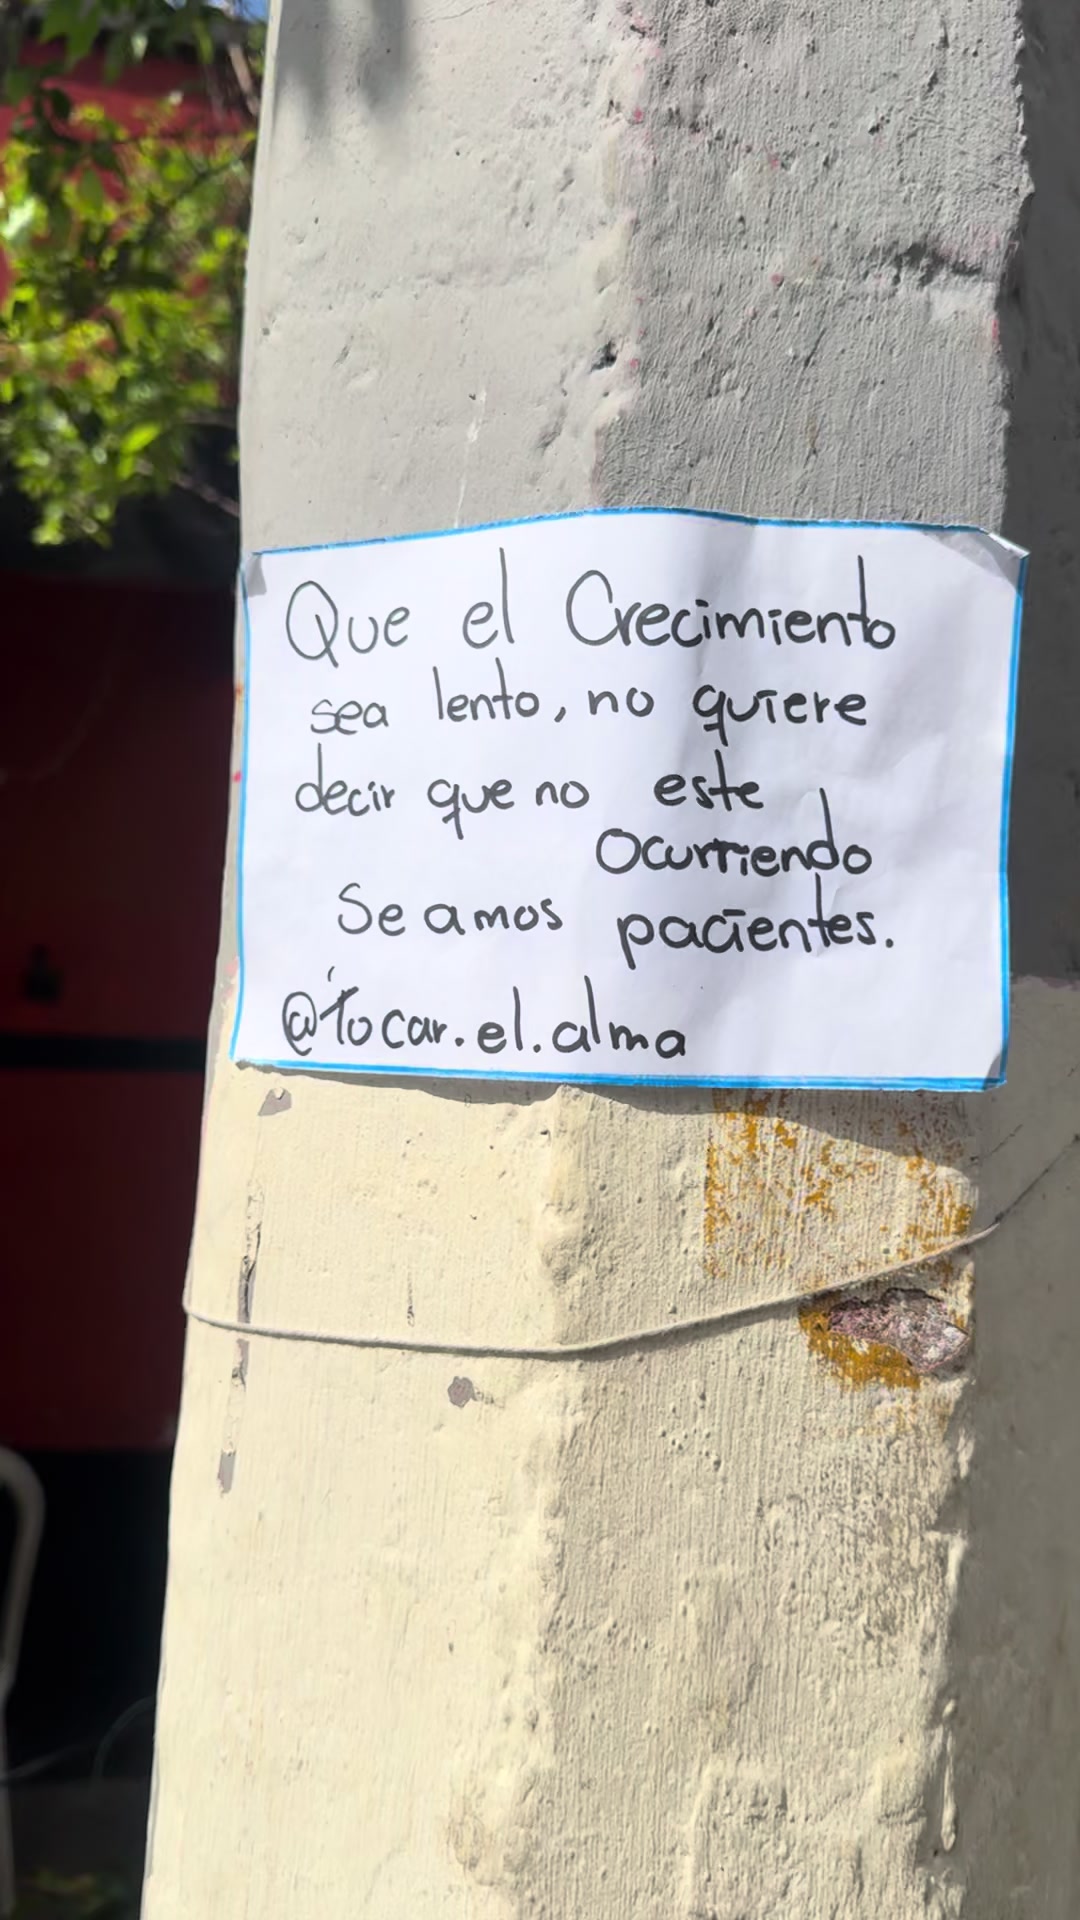 Que el Crecimiento
sea lento, no quiere
decir que no este
Ocurriendo
Seamos pacientes.
@tocar.el.alma